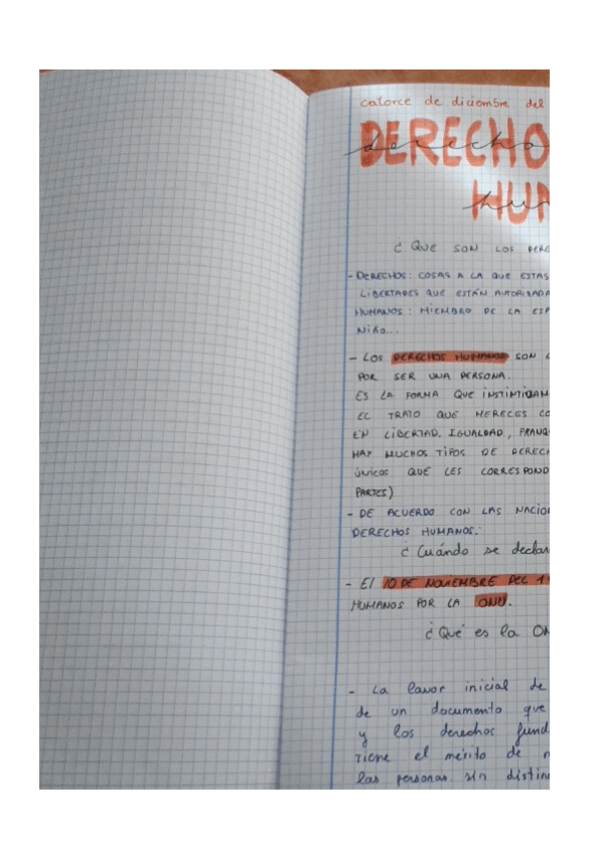 catorce de diciembre del
DERECHO
derecho
HUM
hum
¿ QUE SON LOS DERE
- DERECHOS: COSAS A LA QUE ESTAS
LIBERTADES QUE ESTÁN AUTORIZADA
HUMANOS: MIEMBRO DE LA ESP
NIÑO...
- LOS DERECHOS HUMANOS SON
POR SER UNA PERSONA.
ES LA FORMA QUE INSTINTIVAM
EL TRATO QUE MERECES CO
EN LIBERTAD, IGUALDAD, FRANQ
HAY MUCHOS TIPOS DE DERECH
ÚNICOS QUE LES CORRESPOND
PARTES)
- DE ACUERDO CON LAS NACIO
DERECHOS HUMANOS.
¿ Cuándo se declar
- El 10 DE NOVIEMBRE DEL 1
HUMANOS POR LA ONU.
¿ Qué es la ON
- La lavor inicial de
de un documento que
y los derechos fund
TIENE el mérito de
las personas sin distin